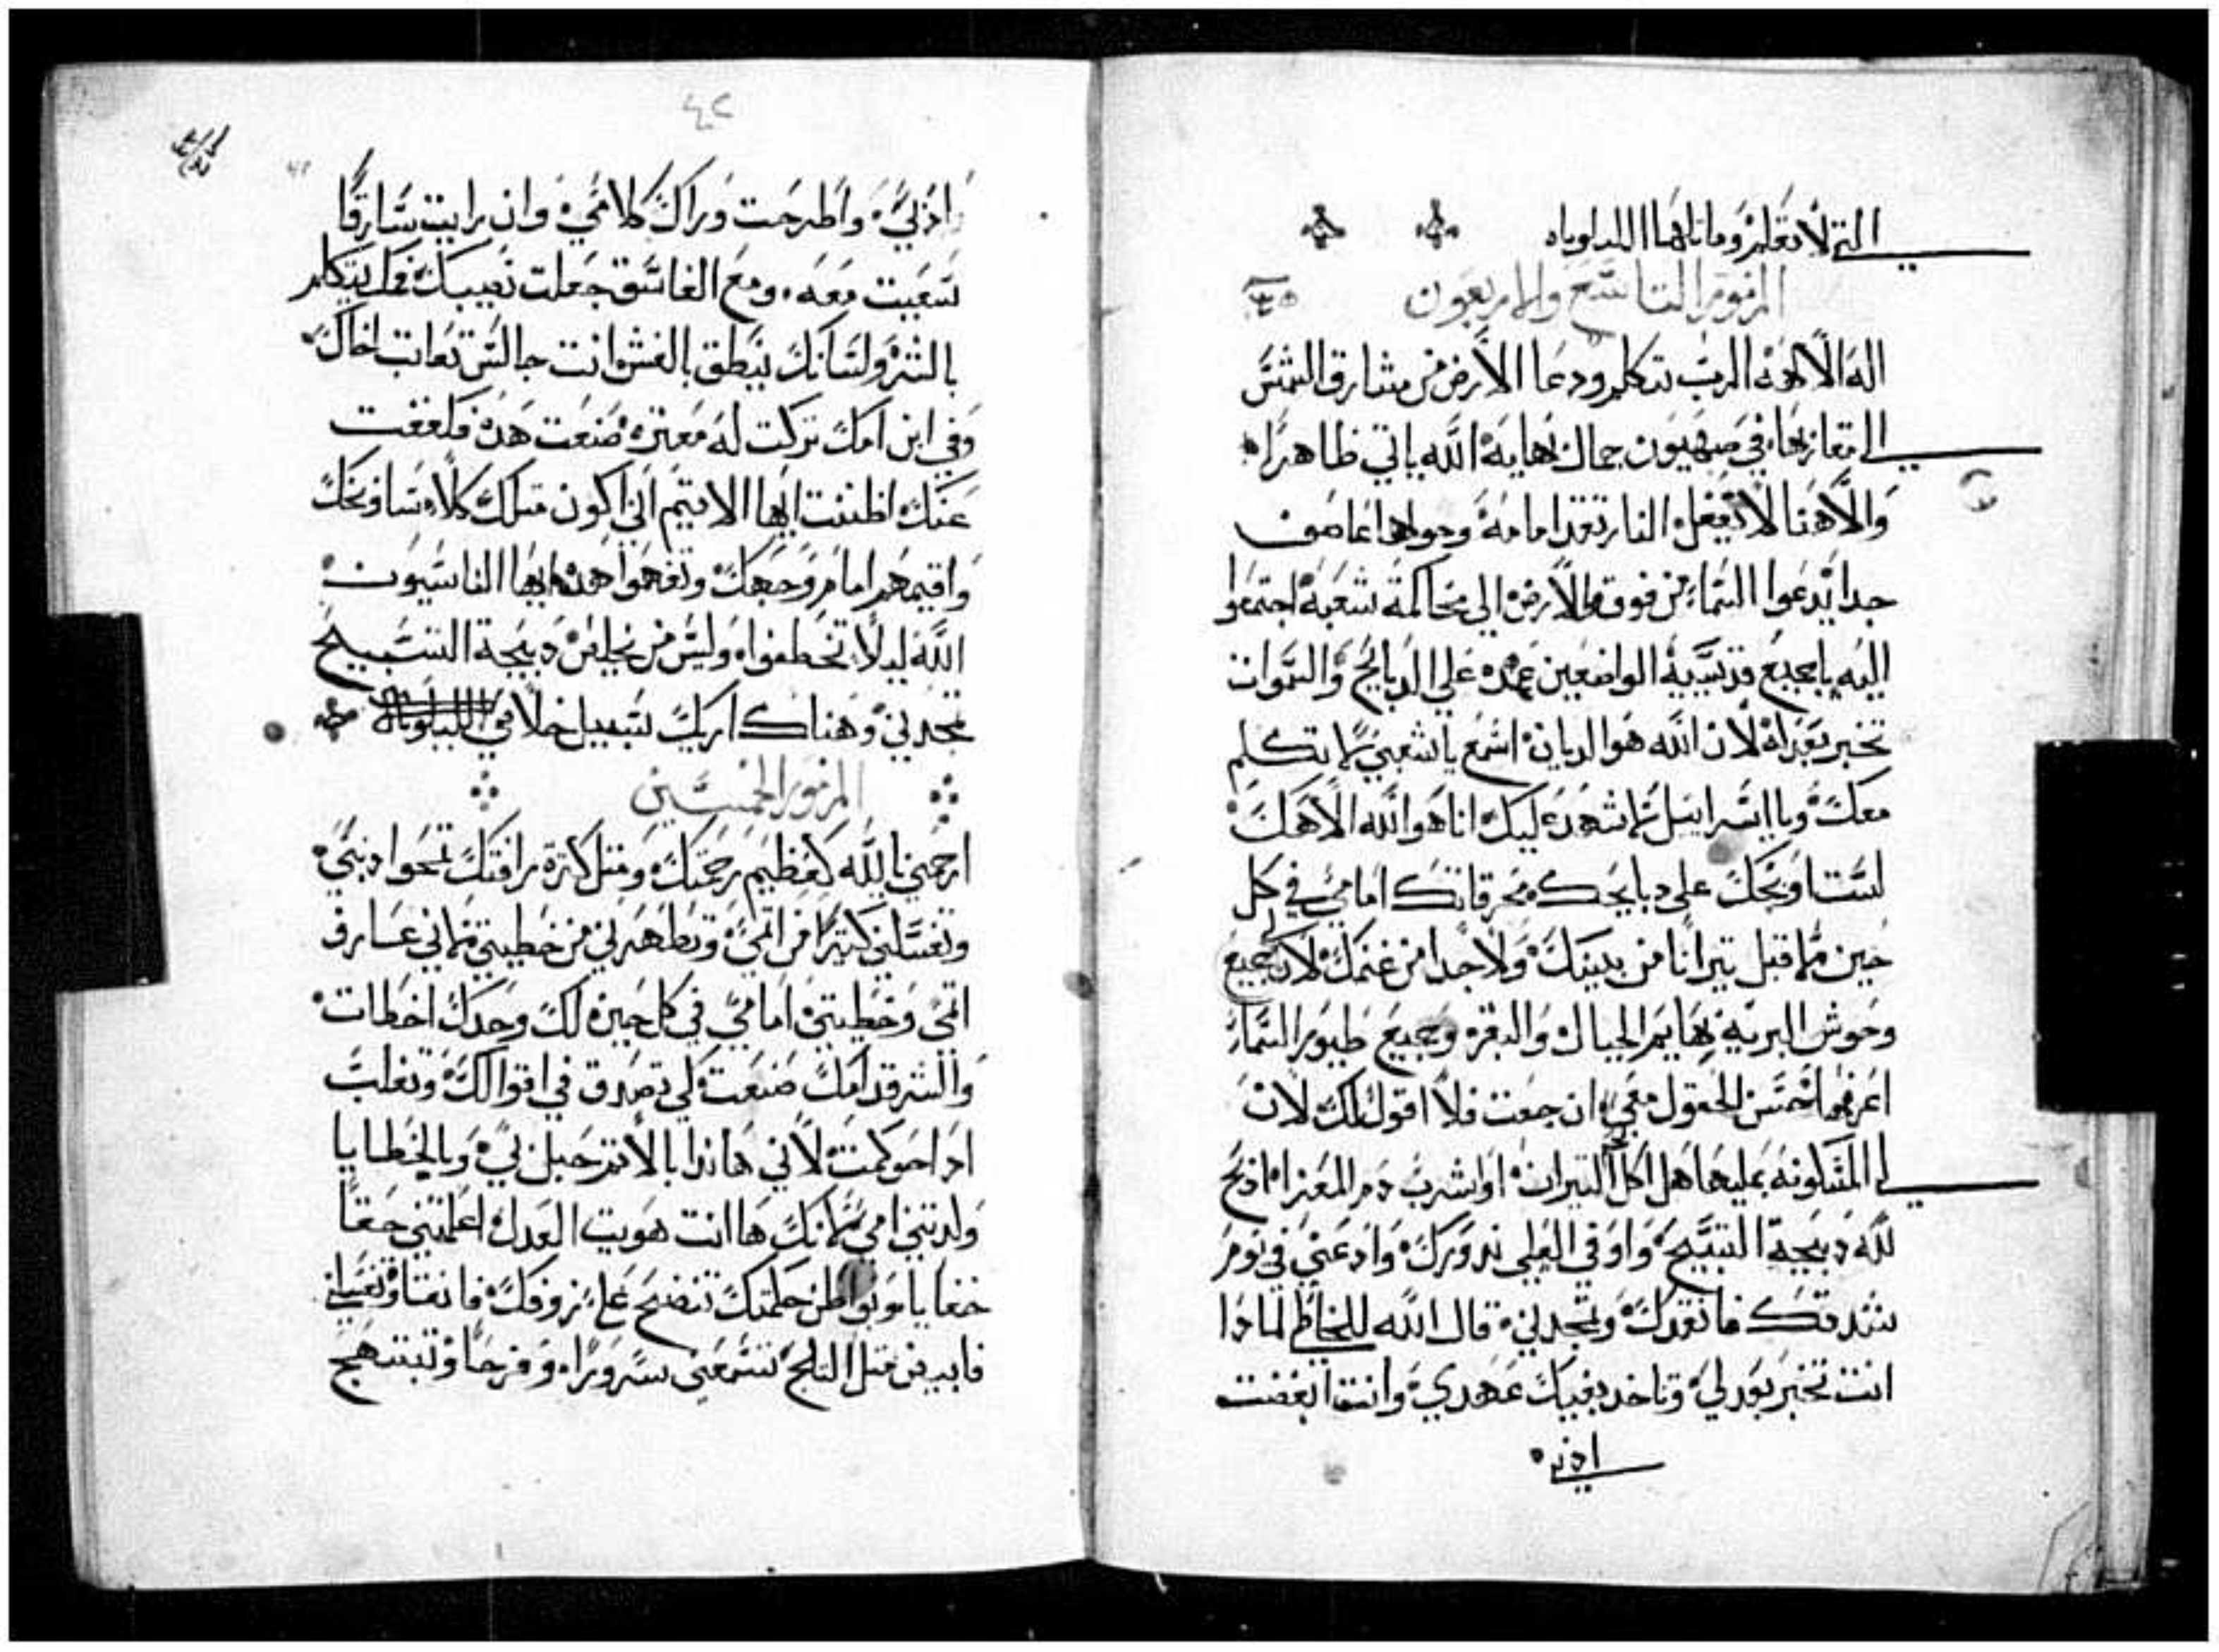 التي لا تعلم وماناها الليلوياه
المزمور التاسع والاربعون
اله الالهه الرب تتكلم ودعا الارض من مشارق الشمس
الي مغاربها في صهيون جمال بهايه الله ياتي ظاهرا
والاهنا لا يغفل النار تقد امامه وحولها عاصف
جدا يدعوا السما من فوق والارض الي محاكمة شعبه اجتمعوا
اليه يا جميع قديسيه الواضعين عهده علي الدبايح والسموات
تخبر بعدله لان الله هو الديان اسمع يا شعبي لاتكلم
معك ويا اسراييل لاشهد عليك انا هو الله الاهك
لست اوبخك علي دبايحك محرقاتك امامي في كل
حين لا اقبل تيرانا من بيتك ولا جدا من غنمك لان لي جميع
وحوش البريه بهايم الجبال والبقر وجميع طيور السما
اعرفها حسن الحقول معي ان جعت فلا اقول لك لان
لي المسكونه بمليها هل اكل لحم التيران او اشرب دم المعز ادبح
لله دبيحة التسبيح واوفي العلي ندورك وادعني في يوم
شدتك فانقدك وتمجدني قال الله للخاطي لمادا
انت تخبر بعدلي وتاخد بفيك عهدي وانت ابغضت
ادني
٤٢
ادبي واطرحت وراك كلامي وان رايت سارقا
سعيت معه ومع الفاسق جعلت نصيبك فمك يتكلم
بالشر ولسانك ينطق بالغش انت جالس تعاتب اخاك
وفي ابن امك تركت له معتره صنعت هده فلغفت
عنك اظننت ايها الاتيم اني اكون متلك كلا ساوبخك
واقيمهم امام وجهك وتفهموا هده ايها الناسيون
الله ليلا تخطفوا وليس من يخلص دبيحة التسبيح
تمجدني وهناك اريك سبيل خلاصي الليلوياه
المزمور الخمسين
ارحمني يا الله كعظيم رحمتك ومتل كترة رافتك تمحوا دنبي
وتغسلني كتيرا من اتمي وتطهرني من خطيتي لاني عارف
اتمي وخطيتي امامي في كل حين لك وحدك اخطات
والشر قدامك صنعت لكي تصدق في اقوالك وتغلب
ادا حوكمت لاني هاندا بالاتم حبل بي وبالخطايا
ولدتني امي لانك ها انت هويت العدل اعلمتني حقا
خفايا وبواطن حكمتك تنضح علي بزوفك فانقا وتغسلني
فابيض متل التلج تسمعني سرورا وفرحا وتبتهج